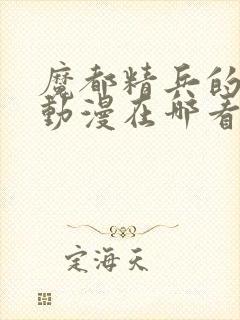 魔都精兵的
動漫在哪看
定海天